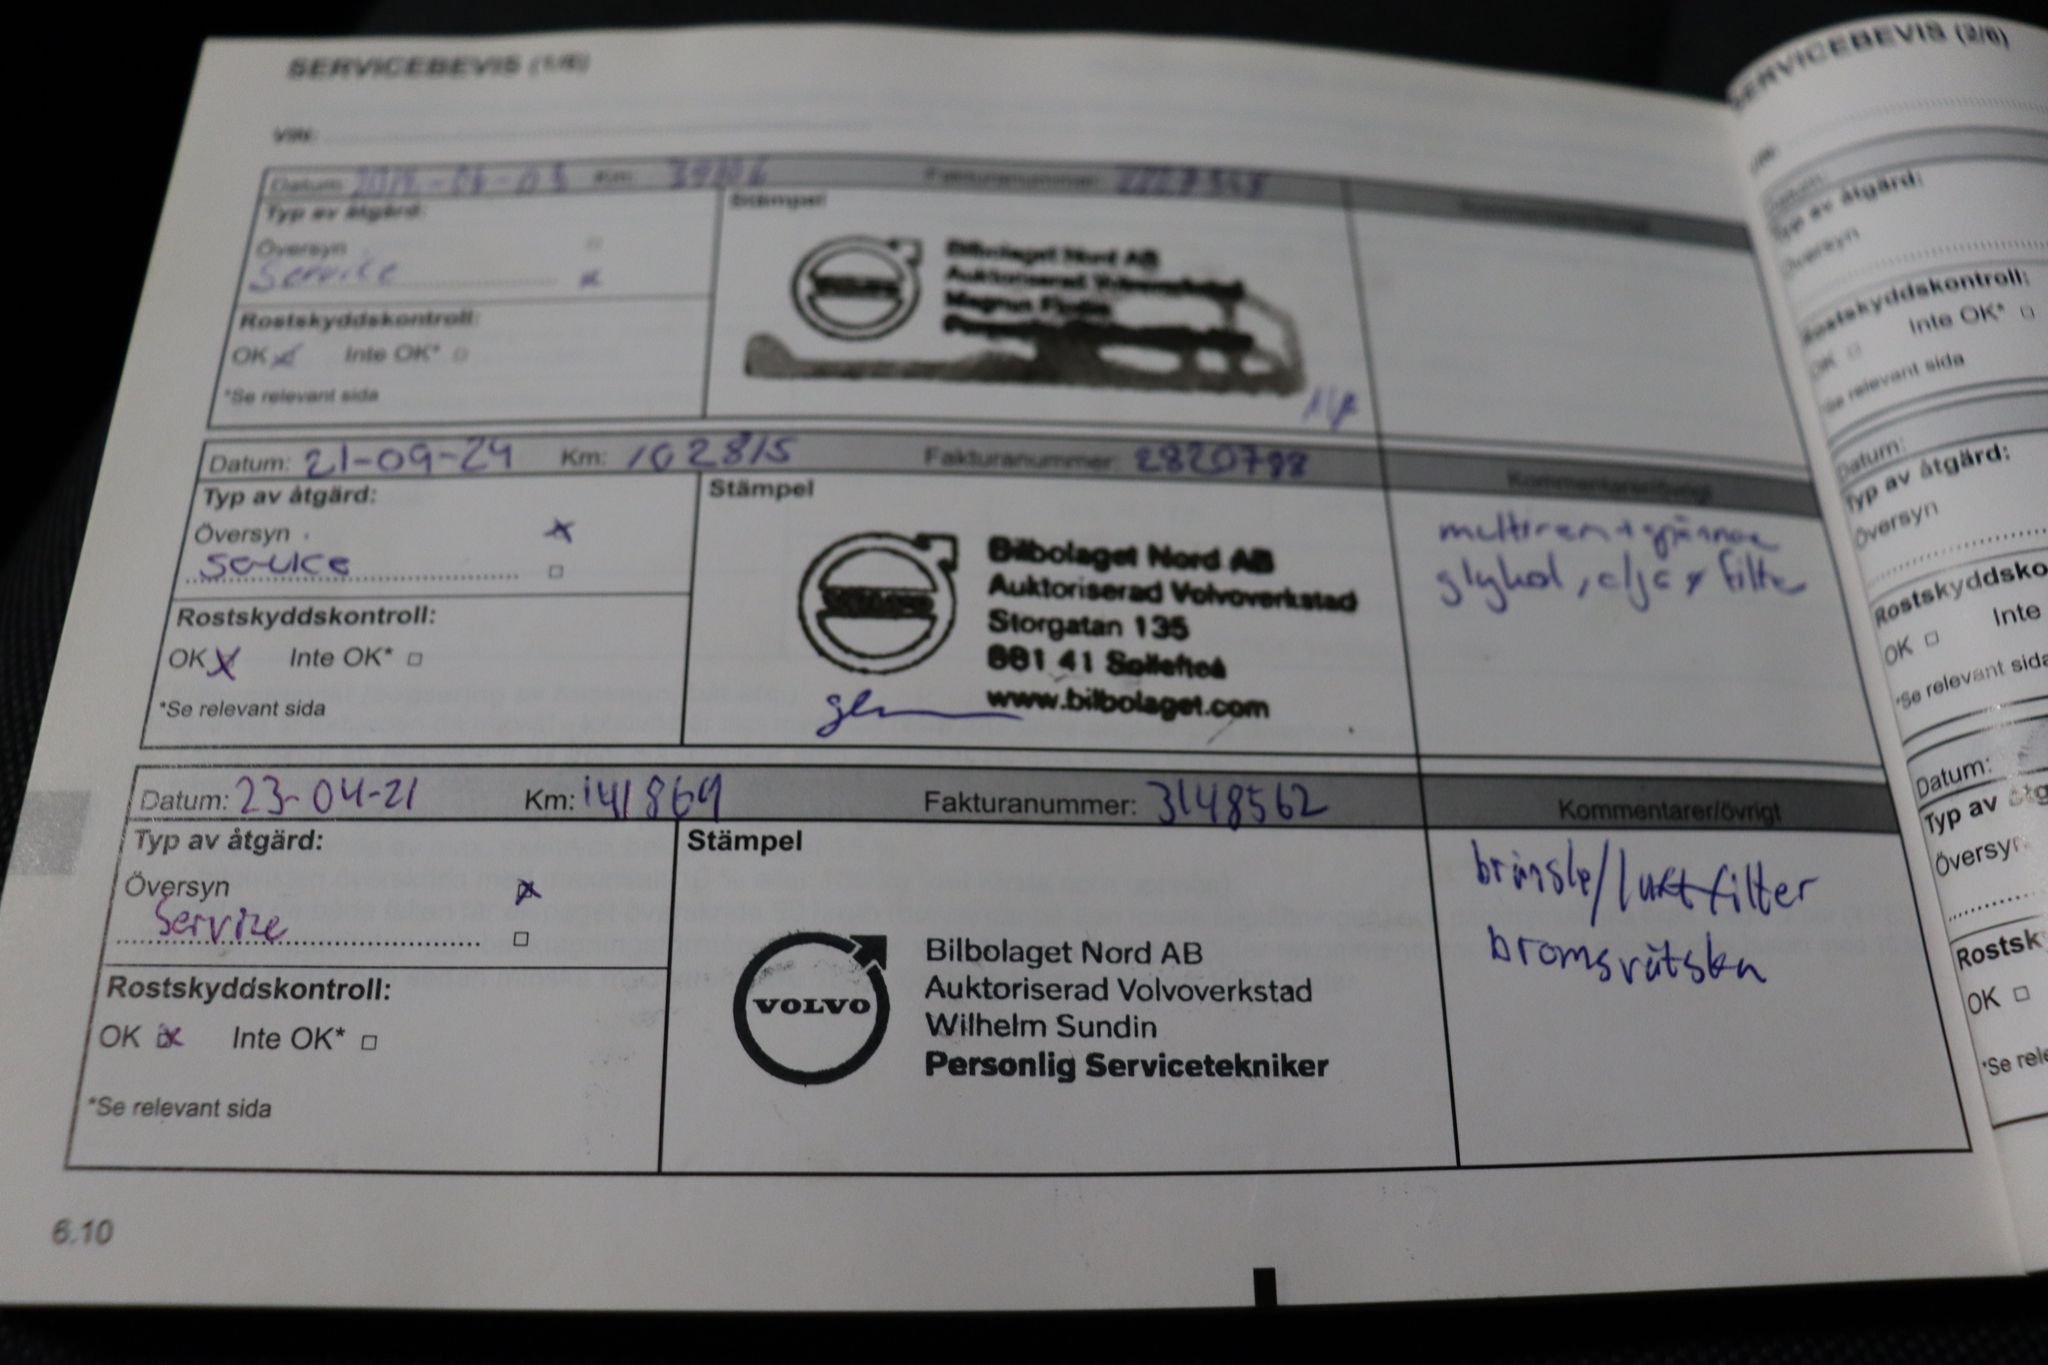 SERVICEBEVIS (1/6)
VIN:
Datum: Km: Fakturanummer:
Typ av åtgärd:
Stämpel
Översyn
Service
Bilbolaget Nord AB
Auktoriserad Volvoverkstad
Rostskyddskontroll:
OK Inte OK*
*Se relevant sida
Datum: 21-09-24 Km: 102815 Fakturanummer: 2820798
Kommentarer/övrigt
Typ av åtgärd:
Stämpel
Översyn
Service
Bilbolaget Nord AB
Auktoriserad Volvoverkstad
Storgatan 135
881 41 Sollefteå
www.bilbolaget.com
glykol, olja + filter
Rostskyddskontroll:
OK Inte OK*
*Se relevant sida
Datum: 23-04-21 Km: 141869 Fakturanummer: 3148562
Kommentarer/övrigt
Typ av åtgärd:
Stämpel
Översyn
Service
VOLVO
Bilbolaget Nord AB
Auktoriserad Volvoverkstad
Wilhelm Sundin
Personlig Servicetekniker
bränsle/luftfilter
bromsvätska
Rostskyddskontroll:
OK Inte OK*
*Se relevant sida
6.10
SERVICEBEVIS (2/6)
Datum:
Typ av åtgärd:
Översyn
Rostskyddskontroll:
OK Inte OK*
*Se relevant sida
Datum:
Typ av åtgärd:
Översyn
OK Inte
*Se relevant sida
Datum:
Typ av
Översyn
OK